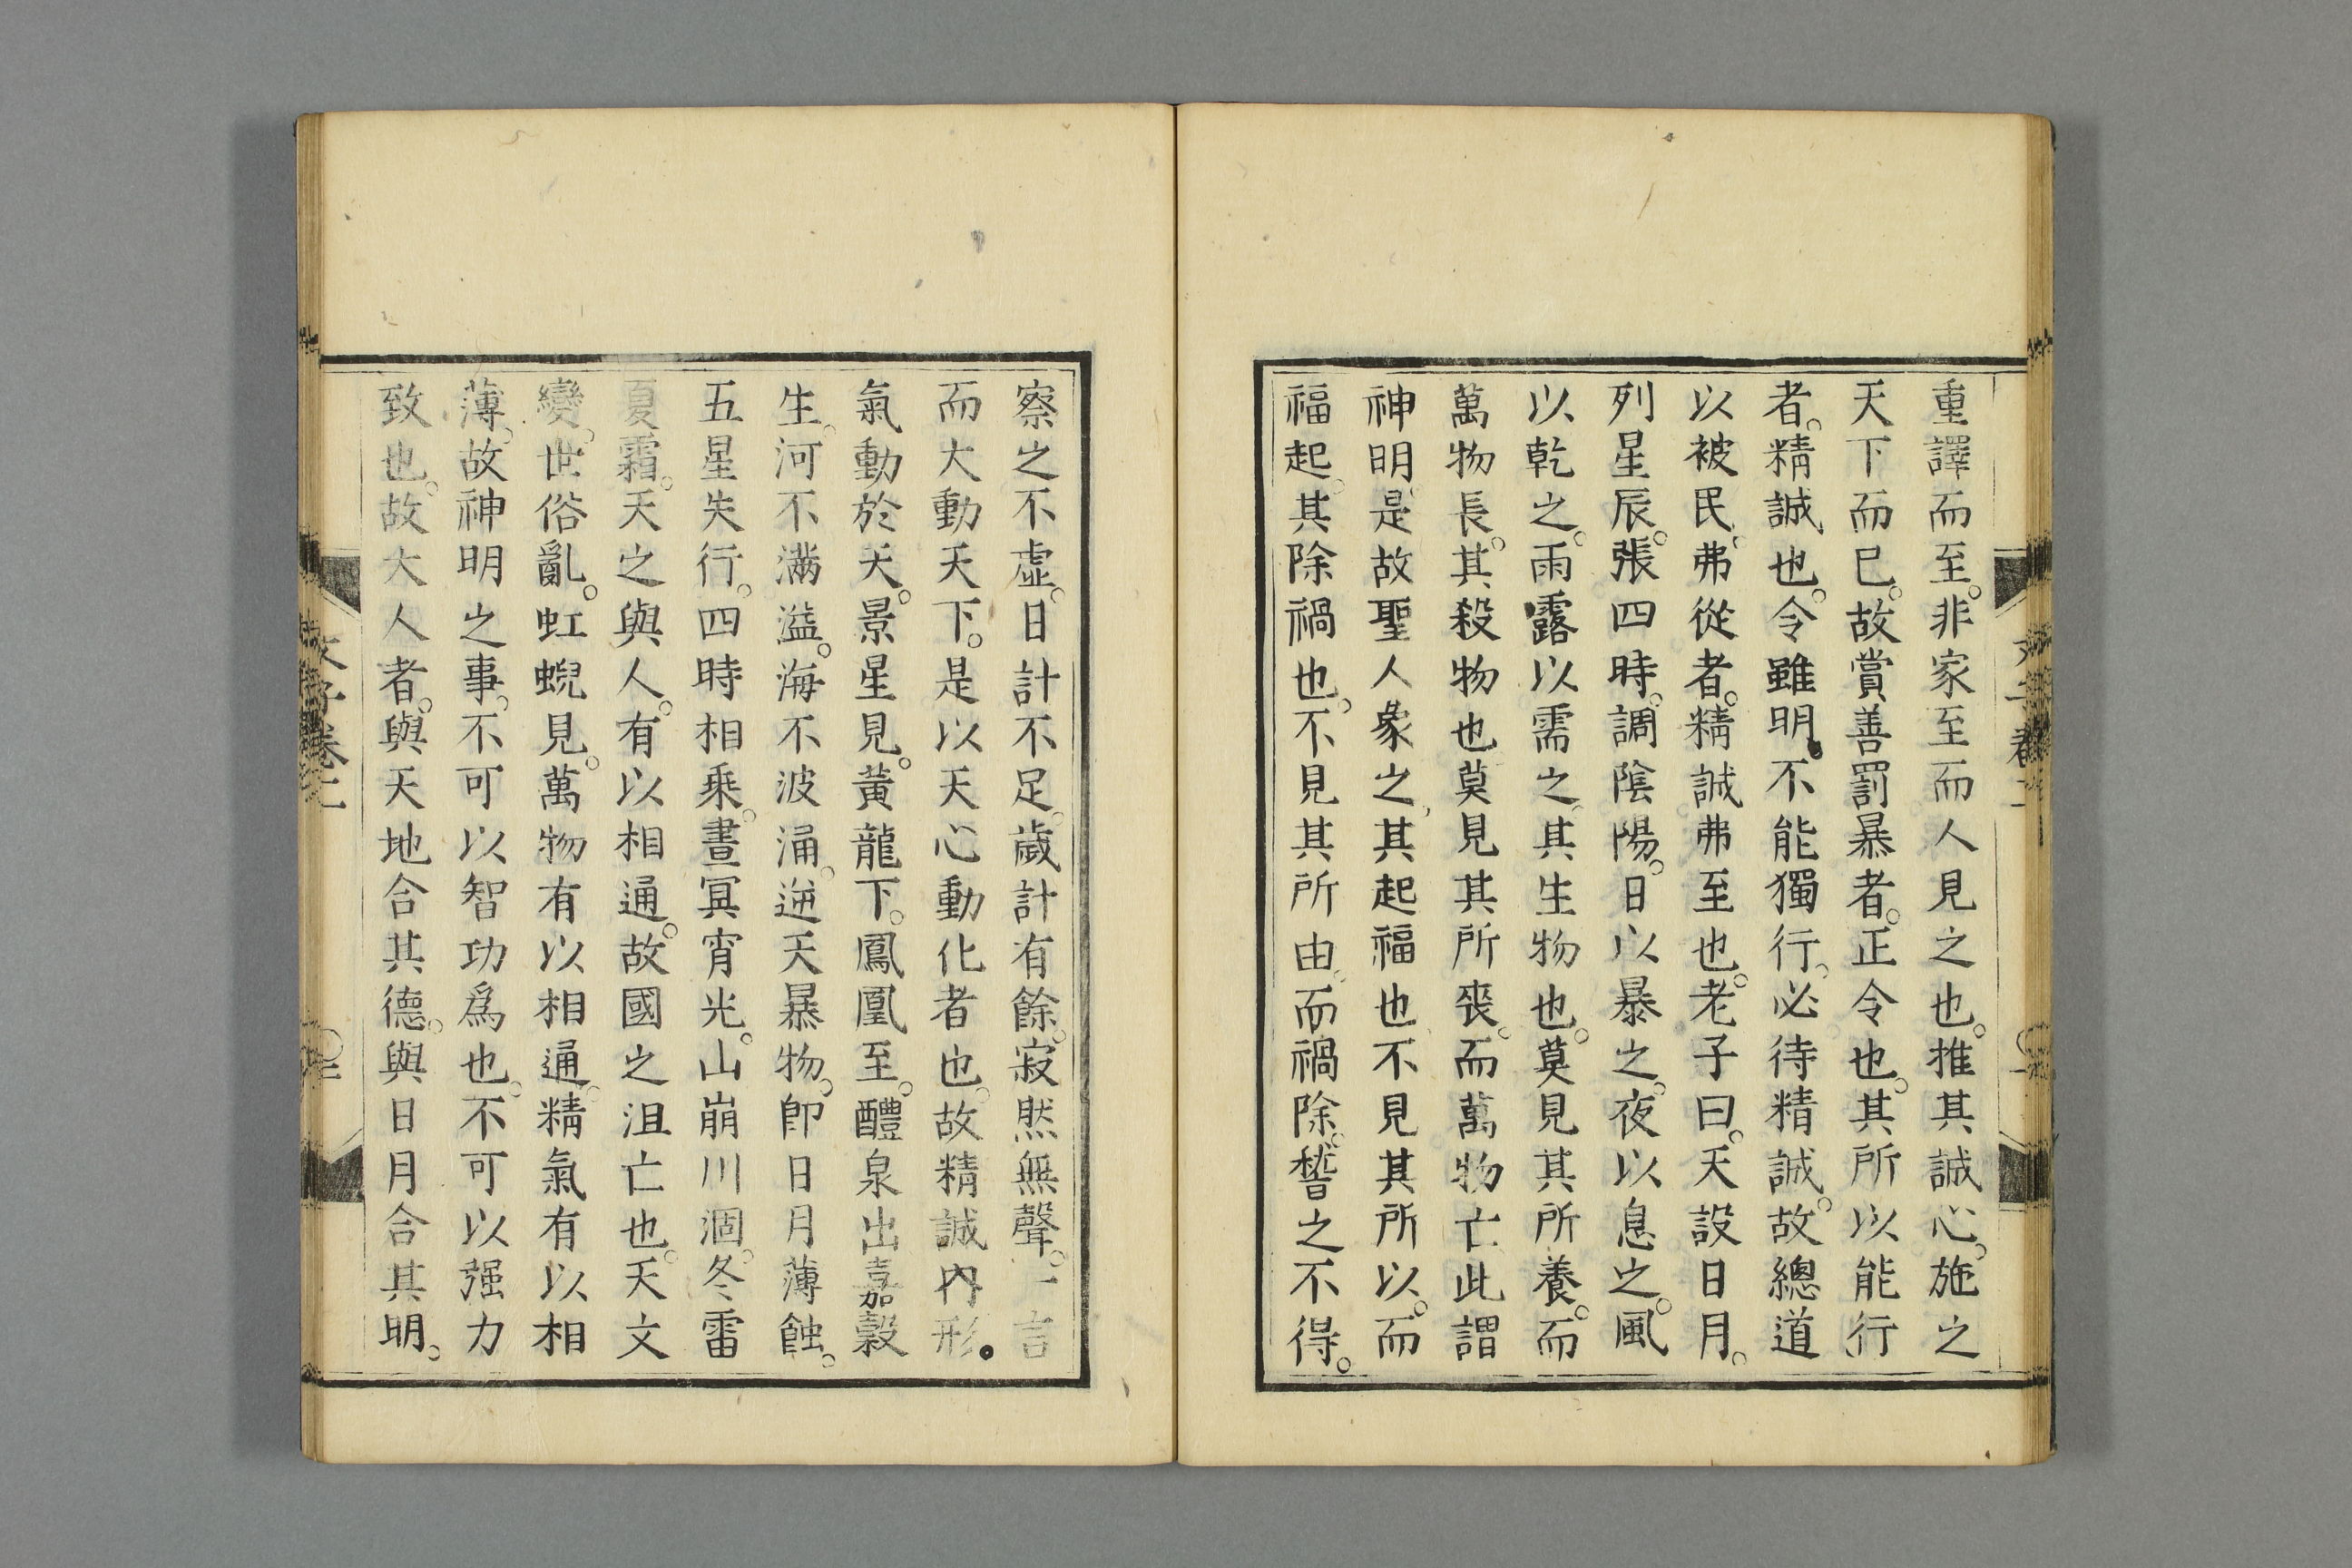 重譯而至。非家至而人見之也。推其誠心。施之
天下而已。故賞善罰暴者。正令也。其所以能行
者。精誠也。令雖明。不能獨行。必待精誠。故總道
以被民。弗從者。精誠弗至也。老子曰。天設日月。
列星辰。張四時。調陰陽。日以暴之。夜以息之。風
以乾之。雨露以需之。其生物也。莫見其所養。而
萬物長。其殺物也莫見其所喪。而萬物亡此謂
神明。是故聖人象之。其起福也不見其所以。而
福起。其除禍也。不見其所由。而禍除。稽之不得。
察之不虛。日計不足。歲計有餘。寂然無聲。一言
而大動天下。是以天心動化者也。故精誠內形。
氣動於天。景星見。黃龍下。鳳凰至。醴泉出嘉穀
生。河不滿溢。海不波涌。逆天暴物。卽日月薄蝕。
五星失行。四時相乘。晝冥宵光。山崩川涸。冬雷
夏霜。天之與人。有以相通。故國之沮亡也。天文
變。世俗亂。虹蜺見。萬物有以相通。精氣有以相
薄。故神明之事。不可以智功爲也。不可以强力
致也。故大人者。與天地合其德。與日月合其明。
文子卷二